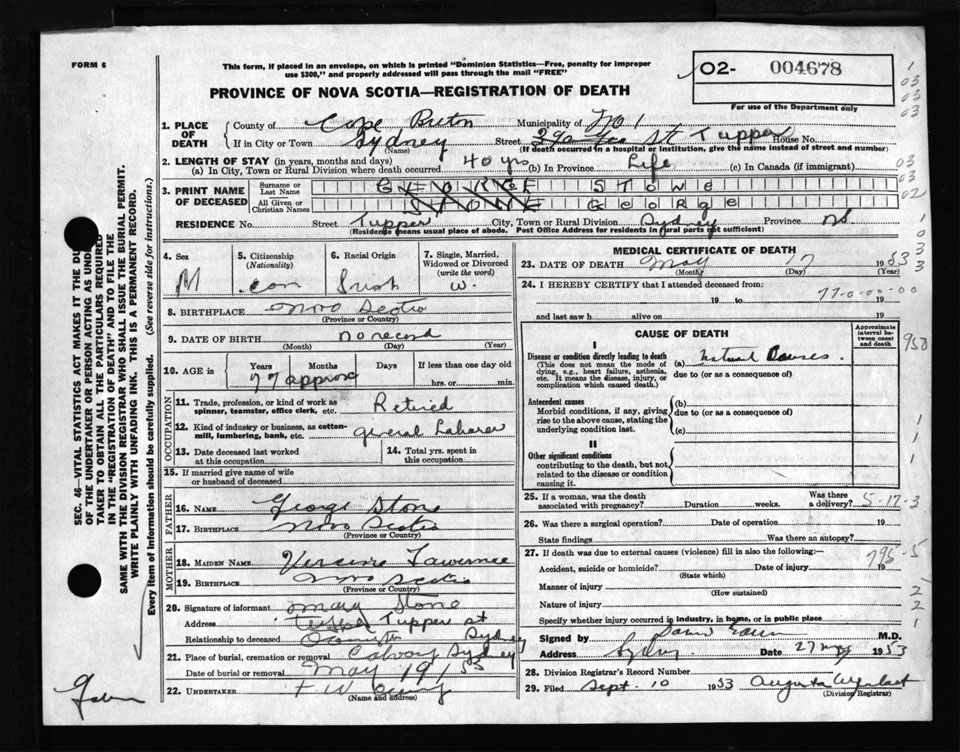 FORM 6
This form, if placed in an envelope, on which is printed "Dominion Statistics—Free, penalty for improper
use $300," and properly addressed will pass through the mail "FREE"
PROVINCE OF NOVA SCOTIA—REGISTRATION OF DEATH
02- 004678
For use of the Department only
1. PLACE OF DEATH
County of Cape Breton Municipality of No 1
If in City or Town Sydney Street 290 St Tupper House No.
(Name) (If death occurred in a hospital or institution, give the name instead of street and number)
2. LENGTH OF STAY (in years, months and days)
(a) In City, Town or Rural Division where death occurred 40 yrs (b) In Province Life (c) In Canada (if immigrant)
3. PRINT NAME OF DECEASED
Surname or Last Name GEORGE STONE
All Given or Christian Names STONE GEORGE
RESIDENCE No. Street Tupper City, Town or Rural Division Sydney Province NS.
(Residence means usual place of abode. Post Office Address for residents in rural parts not sufficient)
4. Sex M
5. Citizenship (Nationality) Can
6. Racial Origin Irish
7. Single, Married, Widowed or Divorced (write the word) W.
8. BIRTHPLACE Nova Scotia
(Province or Country)
9. DATE OF BIRTH no record
(Month) (Day) (Year)
10. AGE in Years Months Days If less than one day old
77 approx hrs. or min.
OCCUPATION
11. Trade, profession, or kind of work as spinner, teamster, office clerk, etc. Retired
12. Kind of industry or business, as cotton-mill, lumbering, bank, etc. general Laborer
13. Date deceased last worked at this occupation
14. Total yrs. spent in this occupation
15. If married give name of wife or husband of deceased
FATHER
16. Name George Stone
17. Birthplace Nova Scotia
(Province or Country)
MOTHER
18. MAIDEN NAME Lawrence
19. BIRTHPLACE Nova Scotia
(Province or Country)
20. Signature of informant Mary Stone
Address Tupper st
Relationship to deceased Sydney
21. Place of burial, cremation or removal Calvary Sydney
Date of burial or removal May 19/53
22. UNDERTAKER
(Name and address)
MEDICAL CERTIFICATE OF DEATH
23. DATE OF DEATH May 17 1953
(Month) (Day) (Year)
24. I HEREBY CERTIFY that I attended deceased from
19 to 19
77-0-00-00
and last saw h alive on 19
CAUSE OF DEATH
Approximate interval between onset and death
I
Disease or condition directly leading to death
(This does not mean the mode of dying, e.g., heart failure, asthenia, etc. It means the disease, injury, or complication which caused death.)
(a) Natural Causes.
due to (or as a consequence of)
Antecedent causes
Morbid conditions, if any, giving rise to the above cause, stating the underlying condition last.
(b)
due to (or as a consequence of)
(c)
II
Other significant conditions
contributing to the death, but not related to the disease or condition causing it.
25. If a woman, was the death associated with pregnancy? Duration weeks. Was there a delivery? 5-17-3
26. Was there a surgical operation? Date of operation 19
State findings Was there an autopsy?
27. If death was due to external causes (violence) fill in also the following:— 795-5
Accident, suicide or homicide? Date of injury 19
(State which)
Manner of injury
(How sustained)
Nature of injury
Specify whether injury occurred in Industry, in home, or in public place
Signed by M.D.
Address Sydney Date 27 May 1953
28. Division Registrar's Record Number
29. Filed Sept. 10 1953
(Division Registrar)
SEC. 46—VITAL STATISTICS ACT MAKES IT THE
OF THE UNDERTAKER OR PERSON ACTING AS UNDER
TAKER TO OBTAIN ALL THE PARTICULARS REQUIRED
IN THE "REGISTRATION OF DEATH" AND TO FILE THE
SAME WITH THE DIVISION REGISTRAR WHO SHALL ISSUE THE BURIAL PERMIT.
WRITE PLAINLY WITH UNFADING INK. THIS IS A PERMANENT RECORD.
Every item of Information should be carefully supplied. (See reverse side for instructions.)